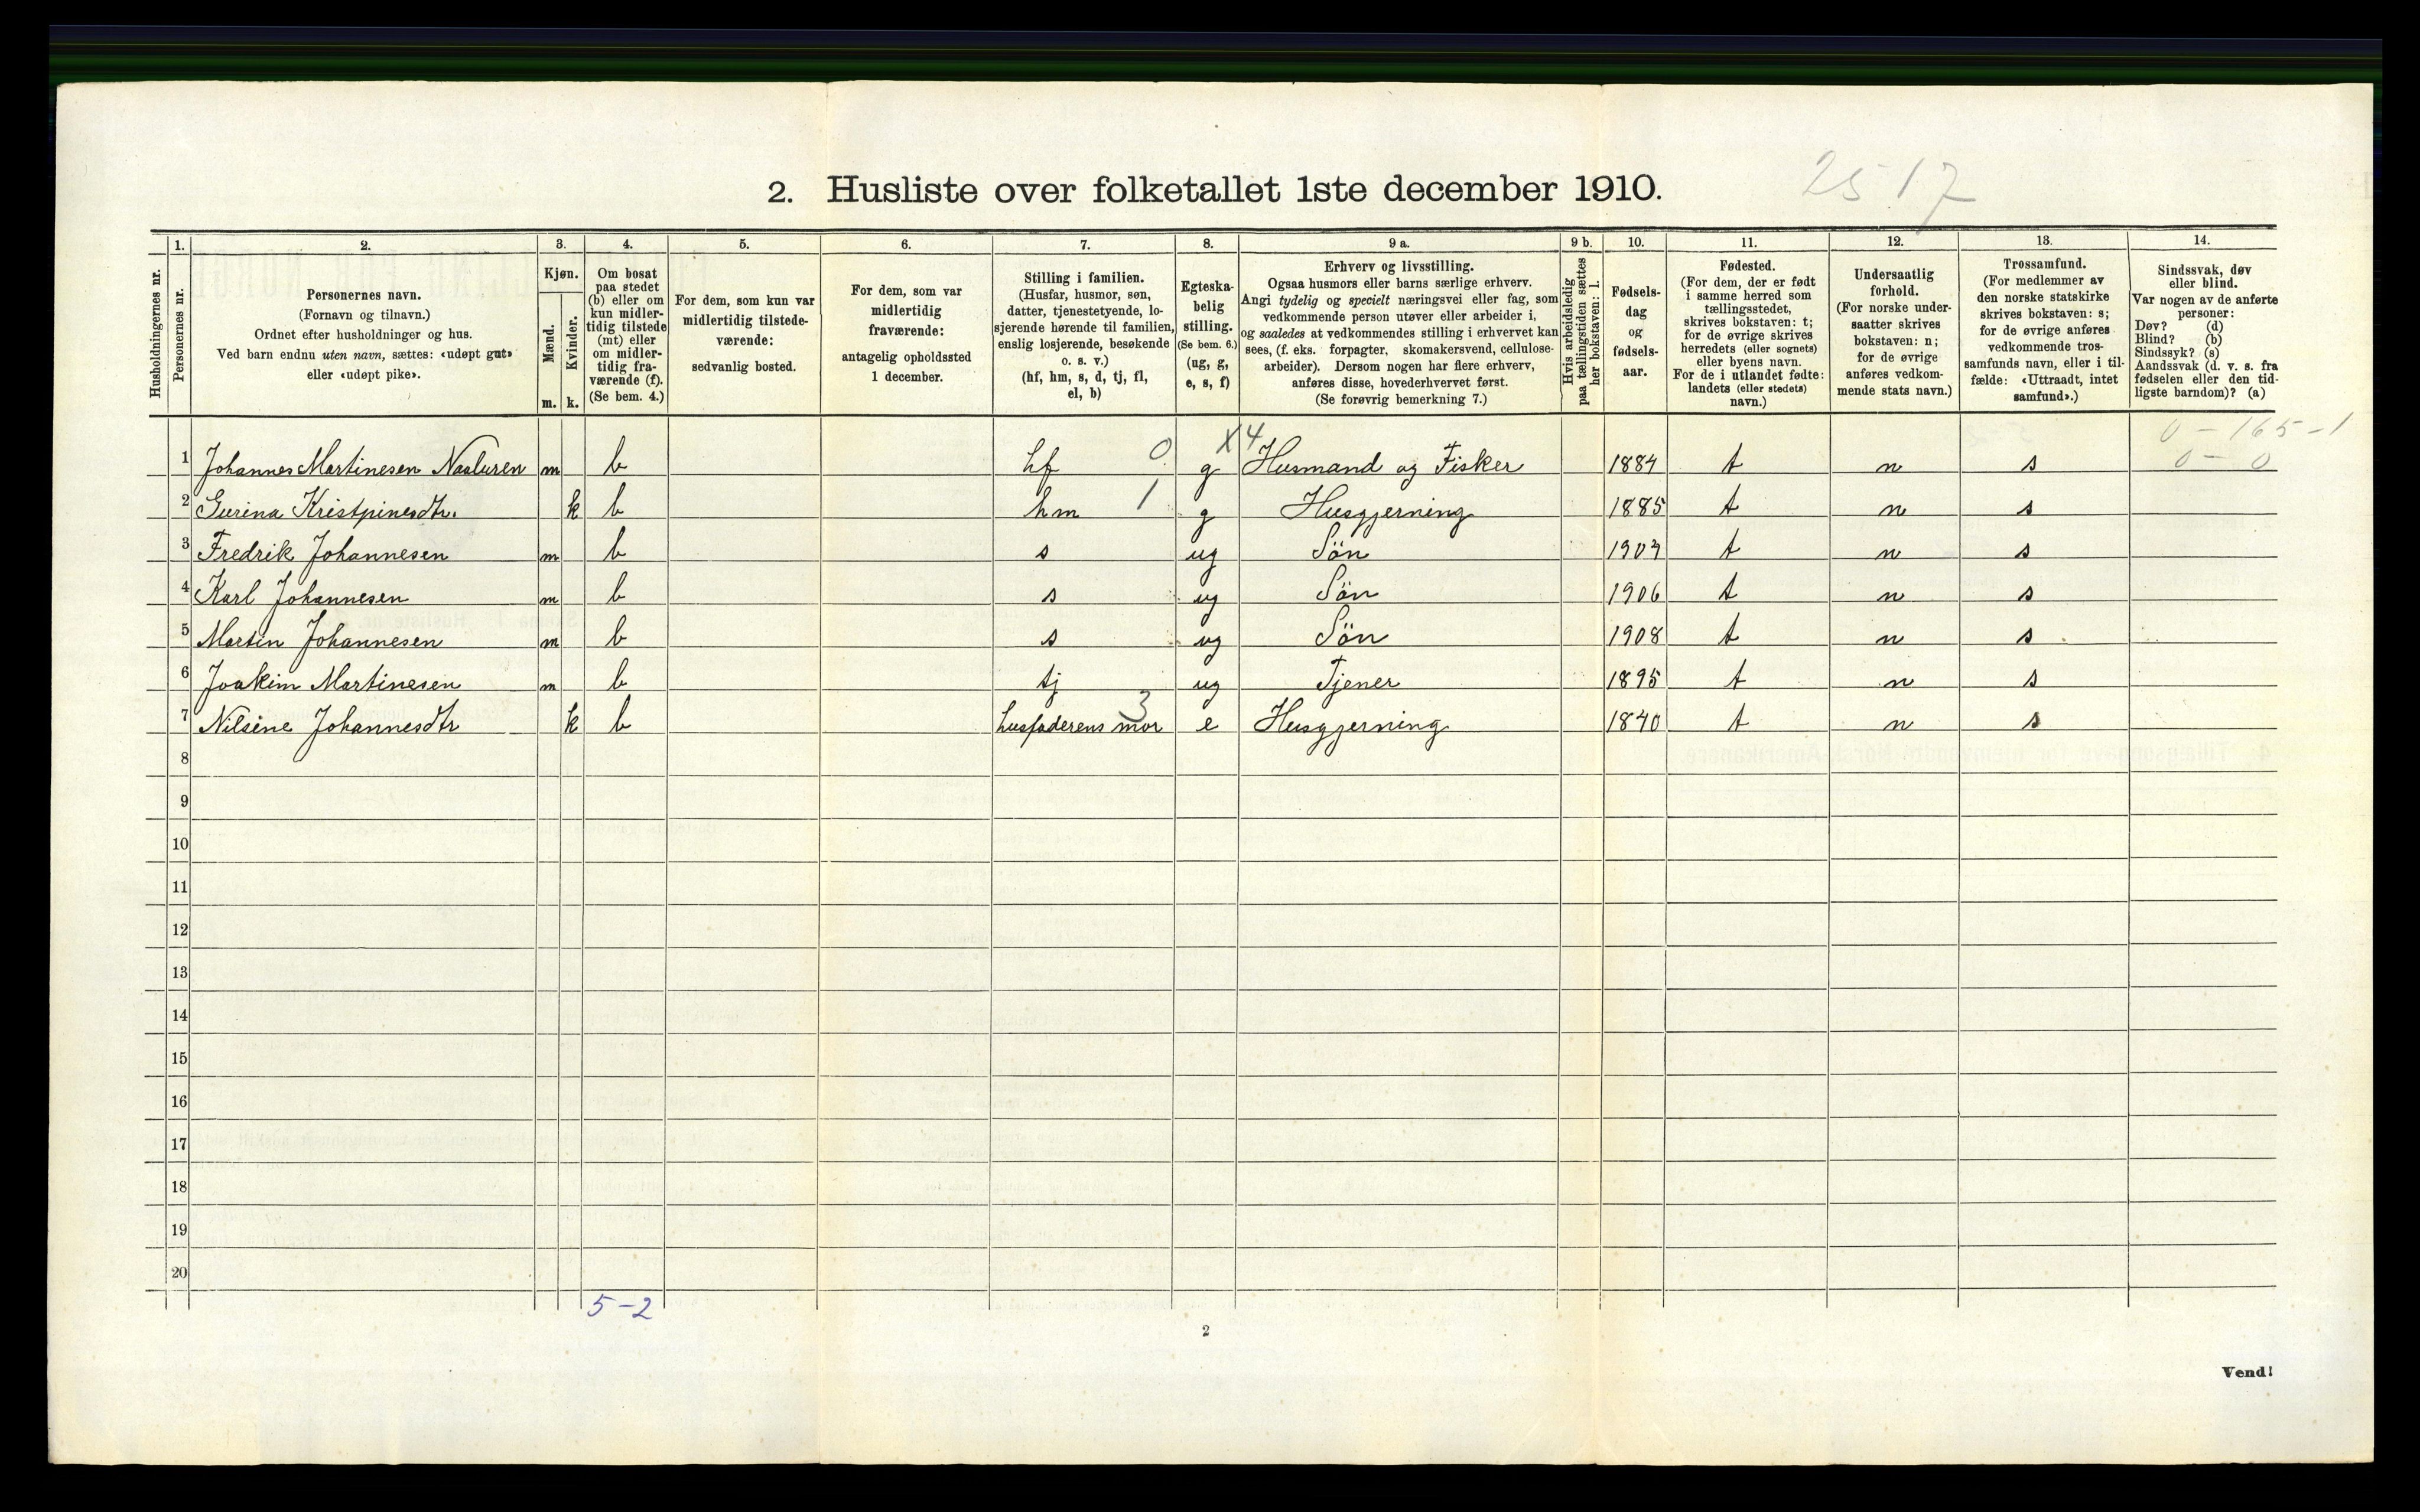 25 17
2. Husliste over folketallet 1ste december 1910.
Husholdningernes nr.
1. Personernes nr.
2. Personernes navn.
(Fornavn og tilnavn.)
Ordnet efter husholdninger og hus.
Ved barn endnu uten navn, sættes: «udøpt gut»
eller «udøpt pike».
3. Kjøn.
Mænd. m.
Kvinder. k.
4. Om bosat
paa stedet
(b) eller om
kun midler-
tidig tilstede
(mt) eller
om midler-
tidig fra-
værende (f).
(Se bem. 4.)
5. For dem, som kun var
midlertidig tilstede-
værende:
sedvanlig bosted.
6. For dem, som var
midlertidig
fraværende:
antagelig opholdssted
1 december.
7. Stilling i familien.
(Husfar, husmor, søn,
datter, tjenestetyende, lo-
sjerende hørende til familien,
enslig losjerende, besøkende
o. s. v.)
(hf, hm, s, d, tj, fl,
el, b)
8. Egteska-
belig
stilling.
(Se bem. 6.)
(ug, g,
e, s, f)
9 a. Erhverv og livsstilling.
Ogsaa husmors eller barns særlige erhverv.
Angi tydelig og specielt næringsvei eller fag, som
vedkommende person utøver eller arbeider i,
og saaledes at vedkommendes stilling i erhvervet kan
sees, (f. eks. forpagter, skomakersvend, cellulose-
arbeider). Dersom nogen har flere erhverv,
anføres disse, hovederhvervet først.
(Se forøvrig bemerkning 7.)
9 b. Hvis arbeidsledig
paa tællingstiden sættes
her bokstaven: l.
10. Fødsels-
dag
og
fødsels-
aar.
11. Fødested.
(For dem, der er født
i samme herred som
tællingsstedet,
skrives bokstaven: t;
for de øvrige skrives
herredets (eller sognets)
eller byens navn.
For de i utlandet fødte:
landets (eller stedets)
navn.)
12. Undersaatlig
forhold.
(For norske under-
saatter skrives
bokstaven: n;
for de øvrige
anføres vedkom-
mende stats navn.)
13. Trossamfund.
(For medlemmer av
den norske statskirke
skrives bokstaven: s;
for de øvrige anføres
vedkommende tros-
samfunds navn, eller i til-
fælde: «Uttraadt, intet
samfund».)
14. Sindssvak, døv
eller blind.
Var nogen av de anførte
personer:
Døv? (d)
Blind? (b)
Sindssyk? (s)
Aandssvak (d. v. s. fra
fødselen eller den tid-
ligste barndom)? (a)
X4 0 - 165 - 1
1 Johannes Martinesen Naaluren m b hf 0 g Husmand og Fisker 1884 t n s 0 - 0
2 Gurina Kristpinesdtr. k b hm 1 g Husgjerning 1885 t n s
3 Fredrik Johannesen m b s ug Sön t n s
4 Karl Johannesen m b s ug Sön 1906 t n s
5 Martin Johannesen m b s ug Sön 1908 t n s
6 Joakim Martinesen m b tj ug Tjener 1895 t n s
7 Nilsine Johannesdtr k b husfaderens mor 3 e Husgjerning 1840 t n s
8
9
10
11
12
13
14
15
16
17
18
19
20
5-2
2
Vend!